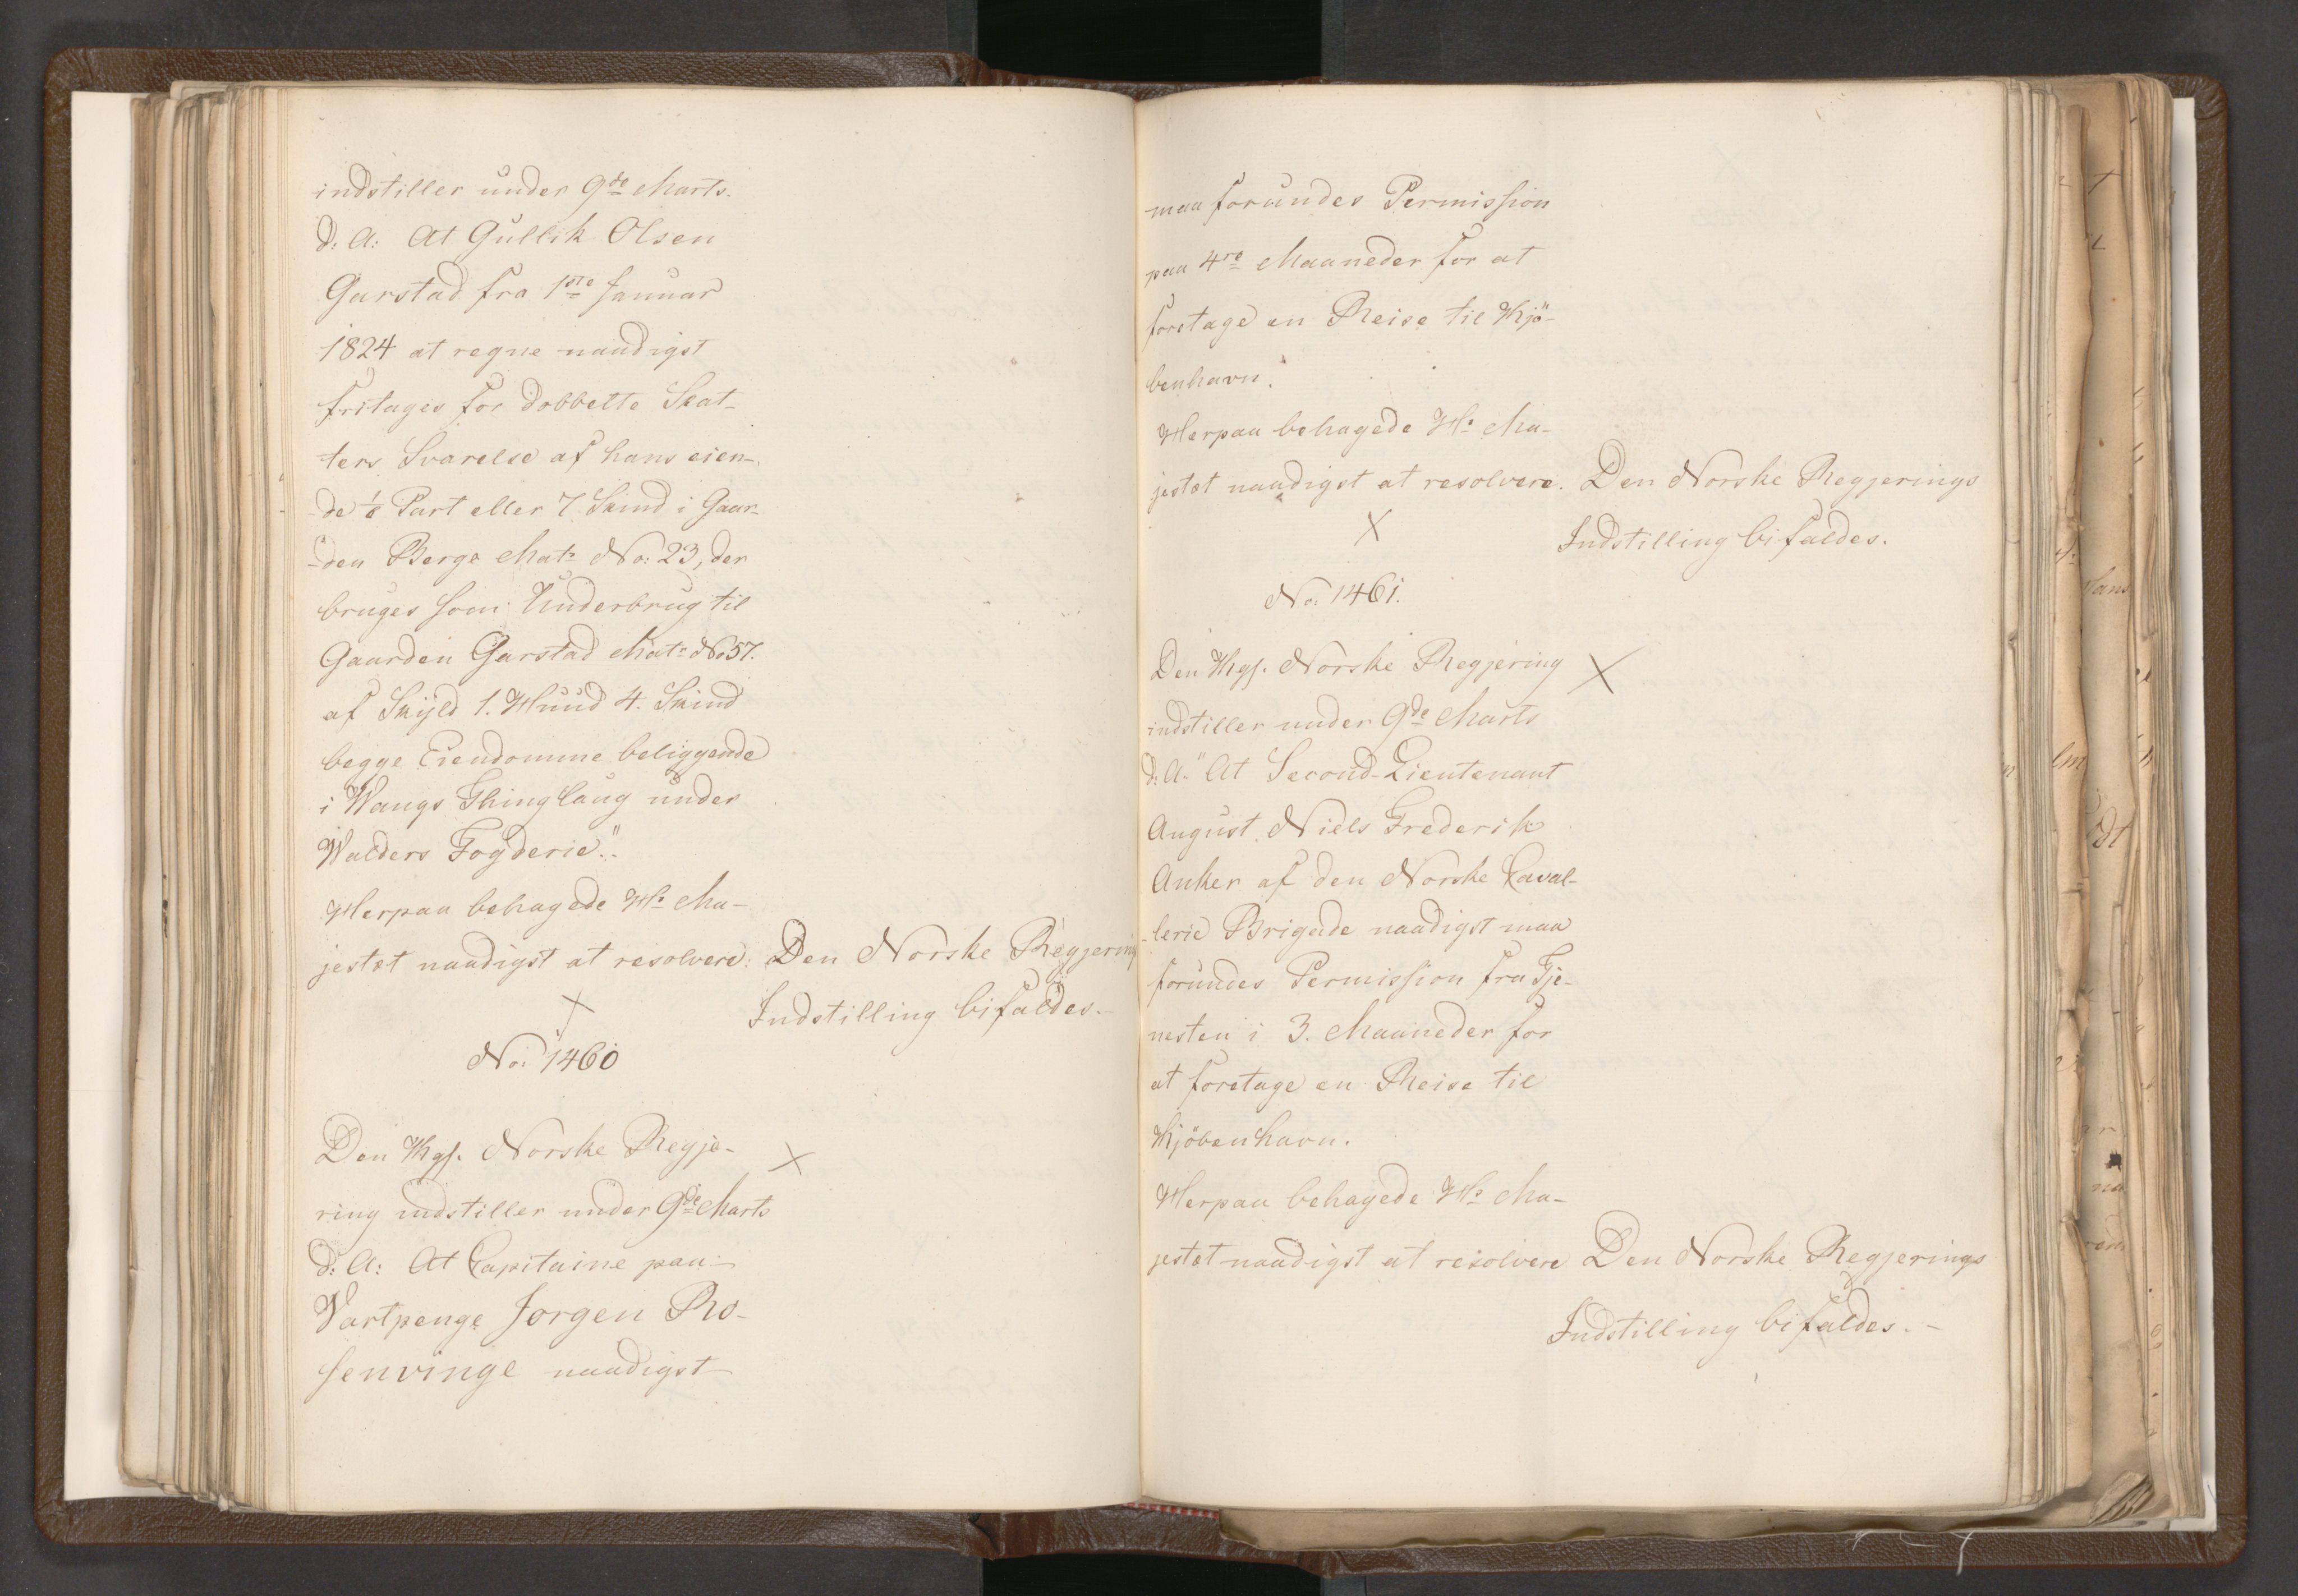 indstiller under 9de Marts.
d: A: At Gullik Olsen
Garstad fra 1ste Januar
1824 at regne naadigst
fritages for dobbelte Skat-
ters Svarelse af hans eien-
de Part eller 7 Skind i Gaar-
den Berge Matr No: 23, der
bruges som Underbrug til
Gaarden Garstad Matr No 57.
af Skyld 1. Huud 4. Skind
begge Eiendomme beliggende
i Wangs Thinglaug under
Walders Fogderie."
Herpaa behagede Hs Ma-
jestæt naadigst at resolvere: Den Norske Regjering
Indstilling bifaldes.-
No: 1460
Den Kgl. Norske Regje-
ring indstiller under 9de Marts
d: A: At Capitaine paa
Vartpenge Jorgen Ro-
senvinge naadigst
maa forundes Permission
paa 4re Maaneder for at
foretage en Reise til Kjö-
benhavn.
Herpaa behagede Hs Ma-
jestæt naadigst at resolvere. Den Norske Regjerings
Indstilling bifaldes.
No: 1461.
Den Kgl. Norske Regjering
indstiller under 9de Marts
d: A: "At Second-Lieutenant
August Niels Frederik
Anker af den Norske Caval-
lerie Brigade naadigst maa
forundes Permission fra Tje-
nesten i 3. Maaneder for
at foretage en Reise til
Kjöbenhavn.
Herpaa behagede Hs Ma-
jestæt naadigst at resolvere Den Norske Regjerings
Indstilling bifaldes.-